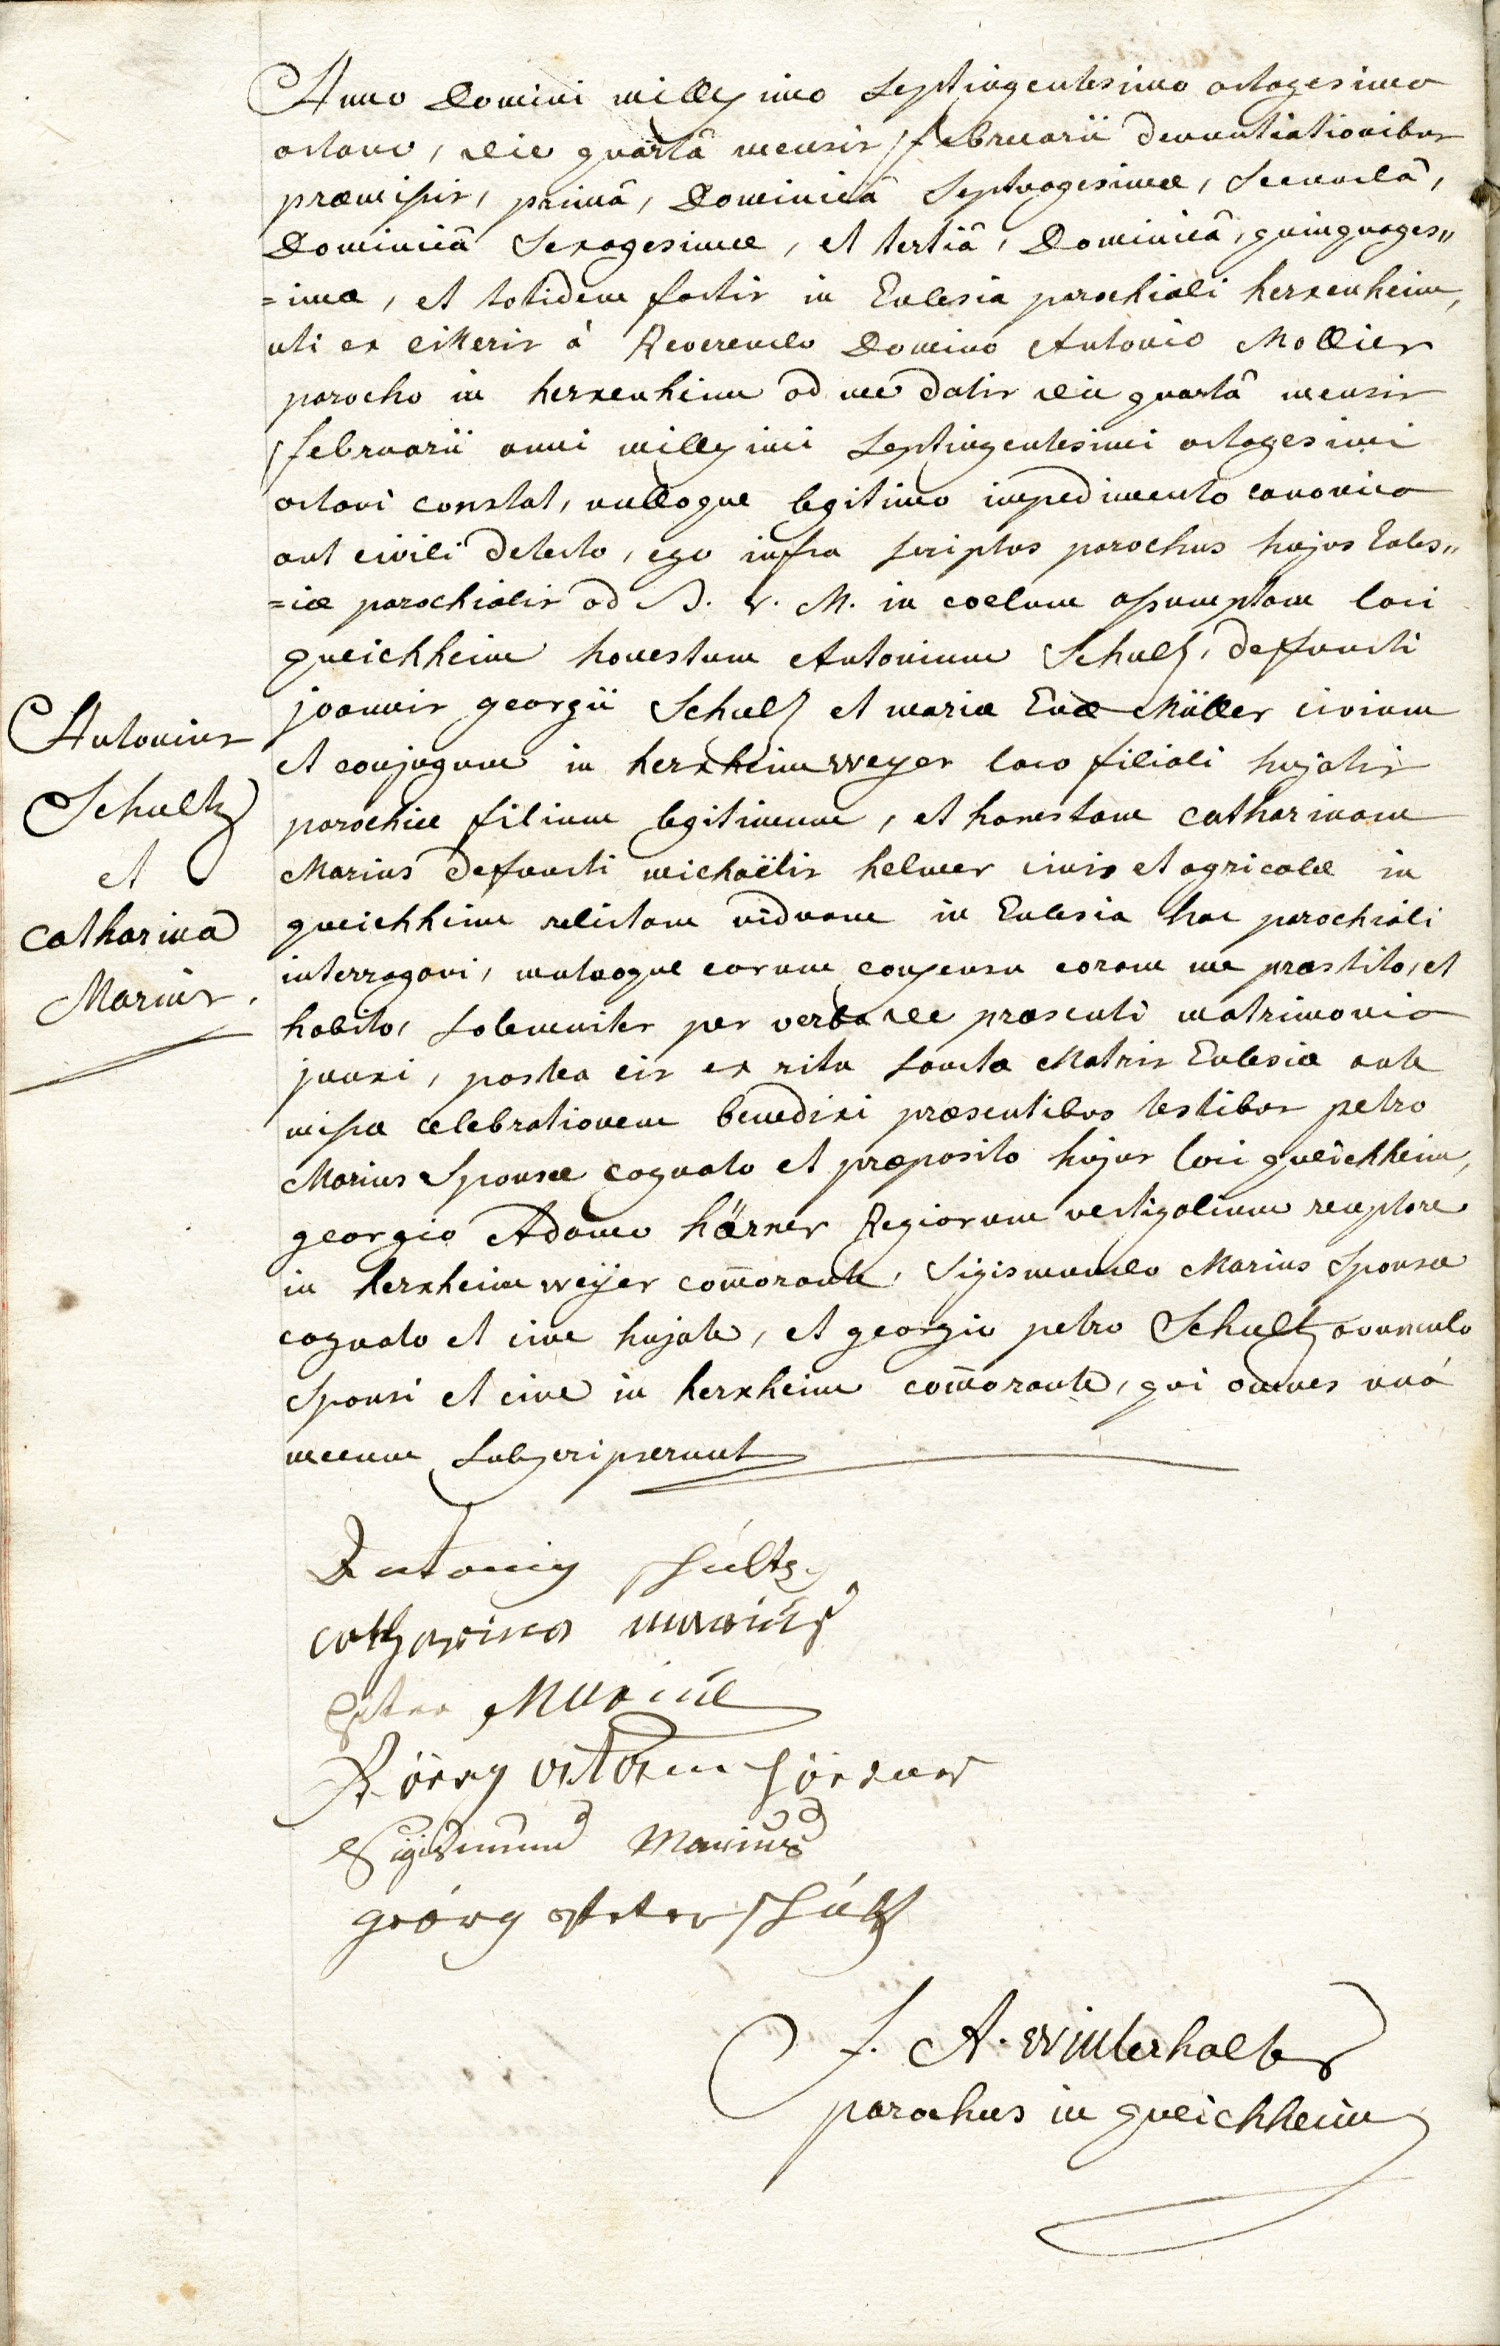 Anno Domini millesimo Septingentesimo octogesimo
octavo, die quartâ mensis februarii denuntiationibus
præmissis, primâ, Dominicâ Septuagesimæ, Secundâ,
Dominicâ Sexagesimæ, et tertiâ, Dominicâ, quinquages„
=imæ, et totidem factis in Eclesia parochiali herxenheim,
uti ex litteris à Reverendo Domino Antonio Mollier
parocho in herxenheim ad me datis die quartâ mensis
februarii anni millesimi Septingentesimi octogesimi
octavi constat, nulloque legitimo impedimento canonico
aut civili detecto, ego infra scriptus parochus hujus Ecles„
=iæ parochialis ad B. V. M. in coelum assumptam loci
queichheim honestum Antonium Schultz, deffuncti
joannis georgii Schultz et mariæ Evæ Müller civium
et conjugum in herxheimweyer loco filiali hujatis
parochiæ filium legitimum, et honestam catharinam
Marius defuncti michaëlis helmer civis et agricolæ in
queichheim relictam viduam in Eclesia hac parochiali
interrogavi, mutuoque eorum consensu coram me præstito, et
habito, Solemniter per verba de præsenti matrimonio
junxi, postea eis ex ritu Sanctæ Matris Eclesiæ ante
missæ celebrationem benedixi præsentibus testibus petro
Marius Sponsæ cognato et præposito hujus loci queichheim,
georgio Adamo hörner Regiorum vectigalium receptore
in herxheimweÿer com̄orante, Sigismundo Marius Sponsæ
cognato et cive hujate, et georgio petro Schultz avunculo
Sponsi et cive in herxheim com̄orante, qui omnes unà
mecum Subscripserunt
Antonius
Schultz
et
catharina
Marius.
Antonius Schultz
catharina marius
Peter Marius
Görg Adam Hörner
Sigismund Marius
georg Peter Schultz
J. A. Winterhalter
parochus in queichheim